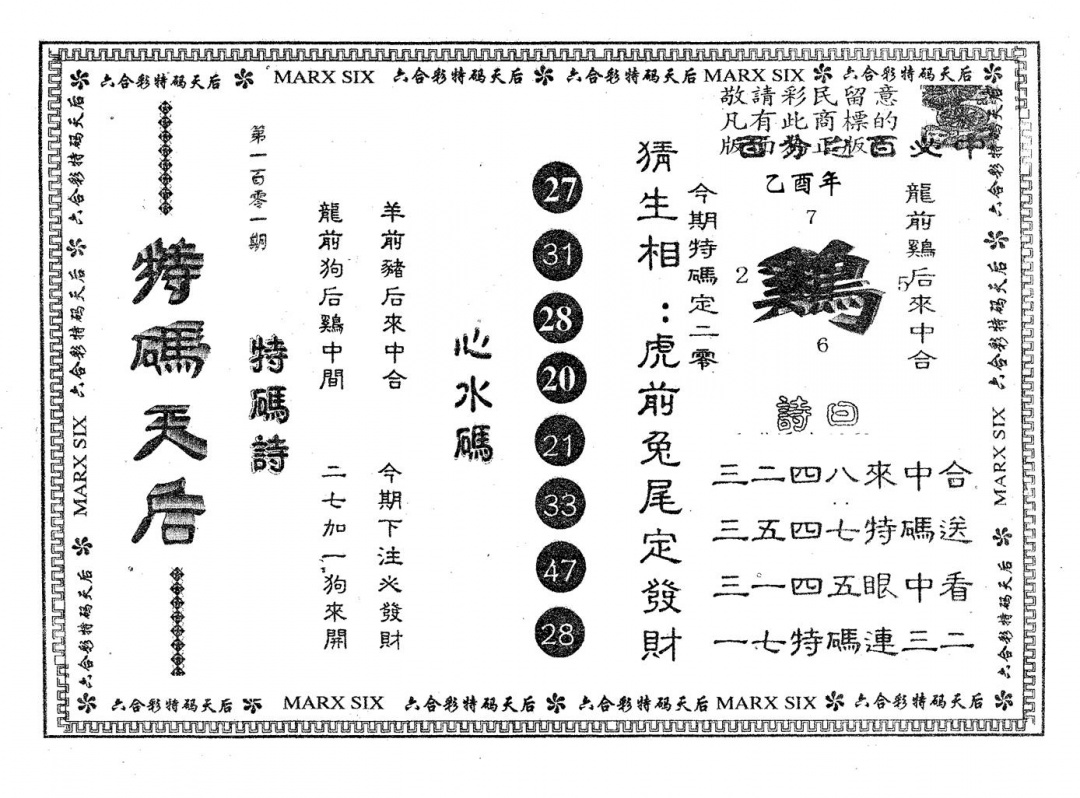 六合彩特码天后 MARX SIX 六合彩特码天后 六合彩特码天后 MARX SIX 六合彩特码天后
敬請彩民留意
凡有此商標的
百分之百必中
乙酉年
7
2
鷄
5
6
龍前鷄后來中合
今期特碼定二零
詩曰
三二四八來中合
三五四七特碼送
三一四五眼中看
一七特碼連三二
猜生相：虎前兔尾定發財
27
31
28
20
21
33
47
28
心水碼
羊前豬后來中合
今期下注必發財
龍前狗后鷄中間
二七加一狗來開
第一百零一期
特碼詩
特碼天后
六合彩特码天后 六合彩特码天后 MARX SIX 六合彩特码天后
六合彩特码天后 六合彩特码天后 MARX SIX 六合彩特码天后
六合彩特码天后 MARX SIX 六合彩特码天后 六合彩特码天后 MARX SIX 六合彩特码天后